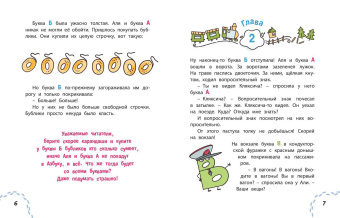 Буква Б была ужасно толстая. Аля и буква А
никак не могли её обойти. Пришлось покупать буб-
лики. Они купили их целую строчку, вот такую:
Но буква Б по-прежнему загораживала им до-
рогу и только покрикивала:
— Больше! Больше!
Но у них не было больше свободной строчки.
Бублики просто некуда было класть.
Уважаемые читатели,
берите скорее карандаши и купите
у буквы Б бубликов кто сколько сумеет,
иначе Аля и буква А не попадут
в Азбуку, и всё что же тогда будет
со всеми буквами?
Даже подумать страшно!
6
Глава
2
Ну наконец-то буква Б отступила! Аля и буква А
вошли в ворота. За воротами зеленел лужок.
На траве паслись двоеточия. За ними, щёлкая кну-
том, ходил вопросительный знак.
— Ты не видел Кляксича? — спросила у него
буква А.
— Кляксича? — Вопросительный знак почесал
в затылке. — Как же. Кляксича-то видел. Он уехал
на поезде. Куда? Откуда мне знать?
И вопросительный знак посмотрел на них во-
просительно.
От этого пастуха толку не добьёшься! Скорей
на вокзал!
На вокзале буква В в кондуктор-
ской фуражке с красным доныш-
ком покрикивала на пассажи-
ров.
— В вагоны! В вагоны! Вхо-
дите в вагоны! Вы в первый
вагон? — спросила оно у Али. —
Ваши вещи?
7